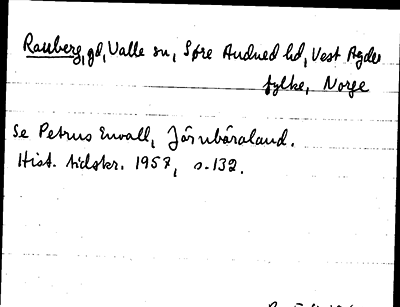 Rauberg, gd, Valle sn, Søre Audned hd, Vest Agder
fylke, Norge
Se Petrus Envall, Järnbäraland.
Hist. tidskr. 1958, s. 132.